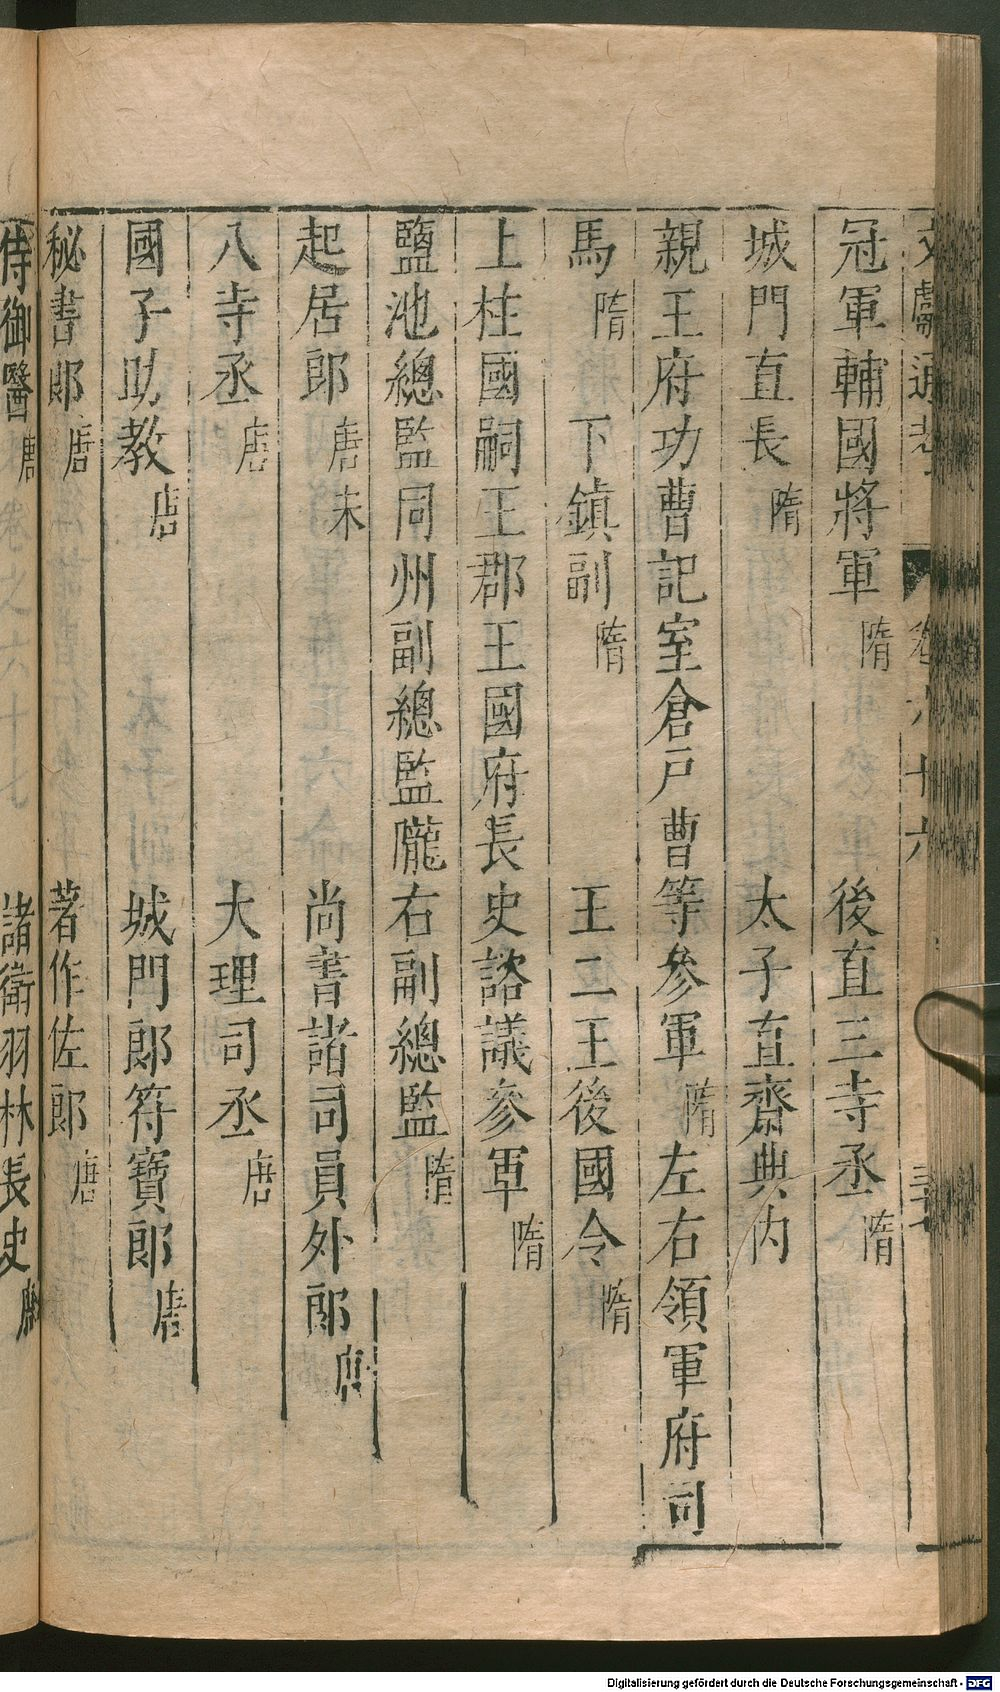 文獻通考 卷六十六
冠軍輔國將軍隋 後直三寺丞隋
城門直長隋 太子直齋典內
親王府功曹記室倉戶曹等參軍隋左右領軍府司
馬隋 下鎮副隋 王二王後國令隋
上柱國嗣王郡王國府長史諮議參軍隋
鹽池總監同州副總監隴右副總監隋
起居郎唐末 尚書諸司員外郎唐
八寺丞唐 大理司丞唐
國子助教唐 城門郎符寶郎唐
秘書郎唐 著作佐郎唐
侍御醫唐 諸衛羽林長史唐
Digitalisierung gefördert durch die Deutsche Forschungsgemeinschaft - DFG